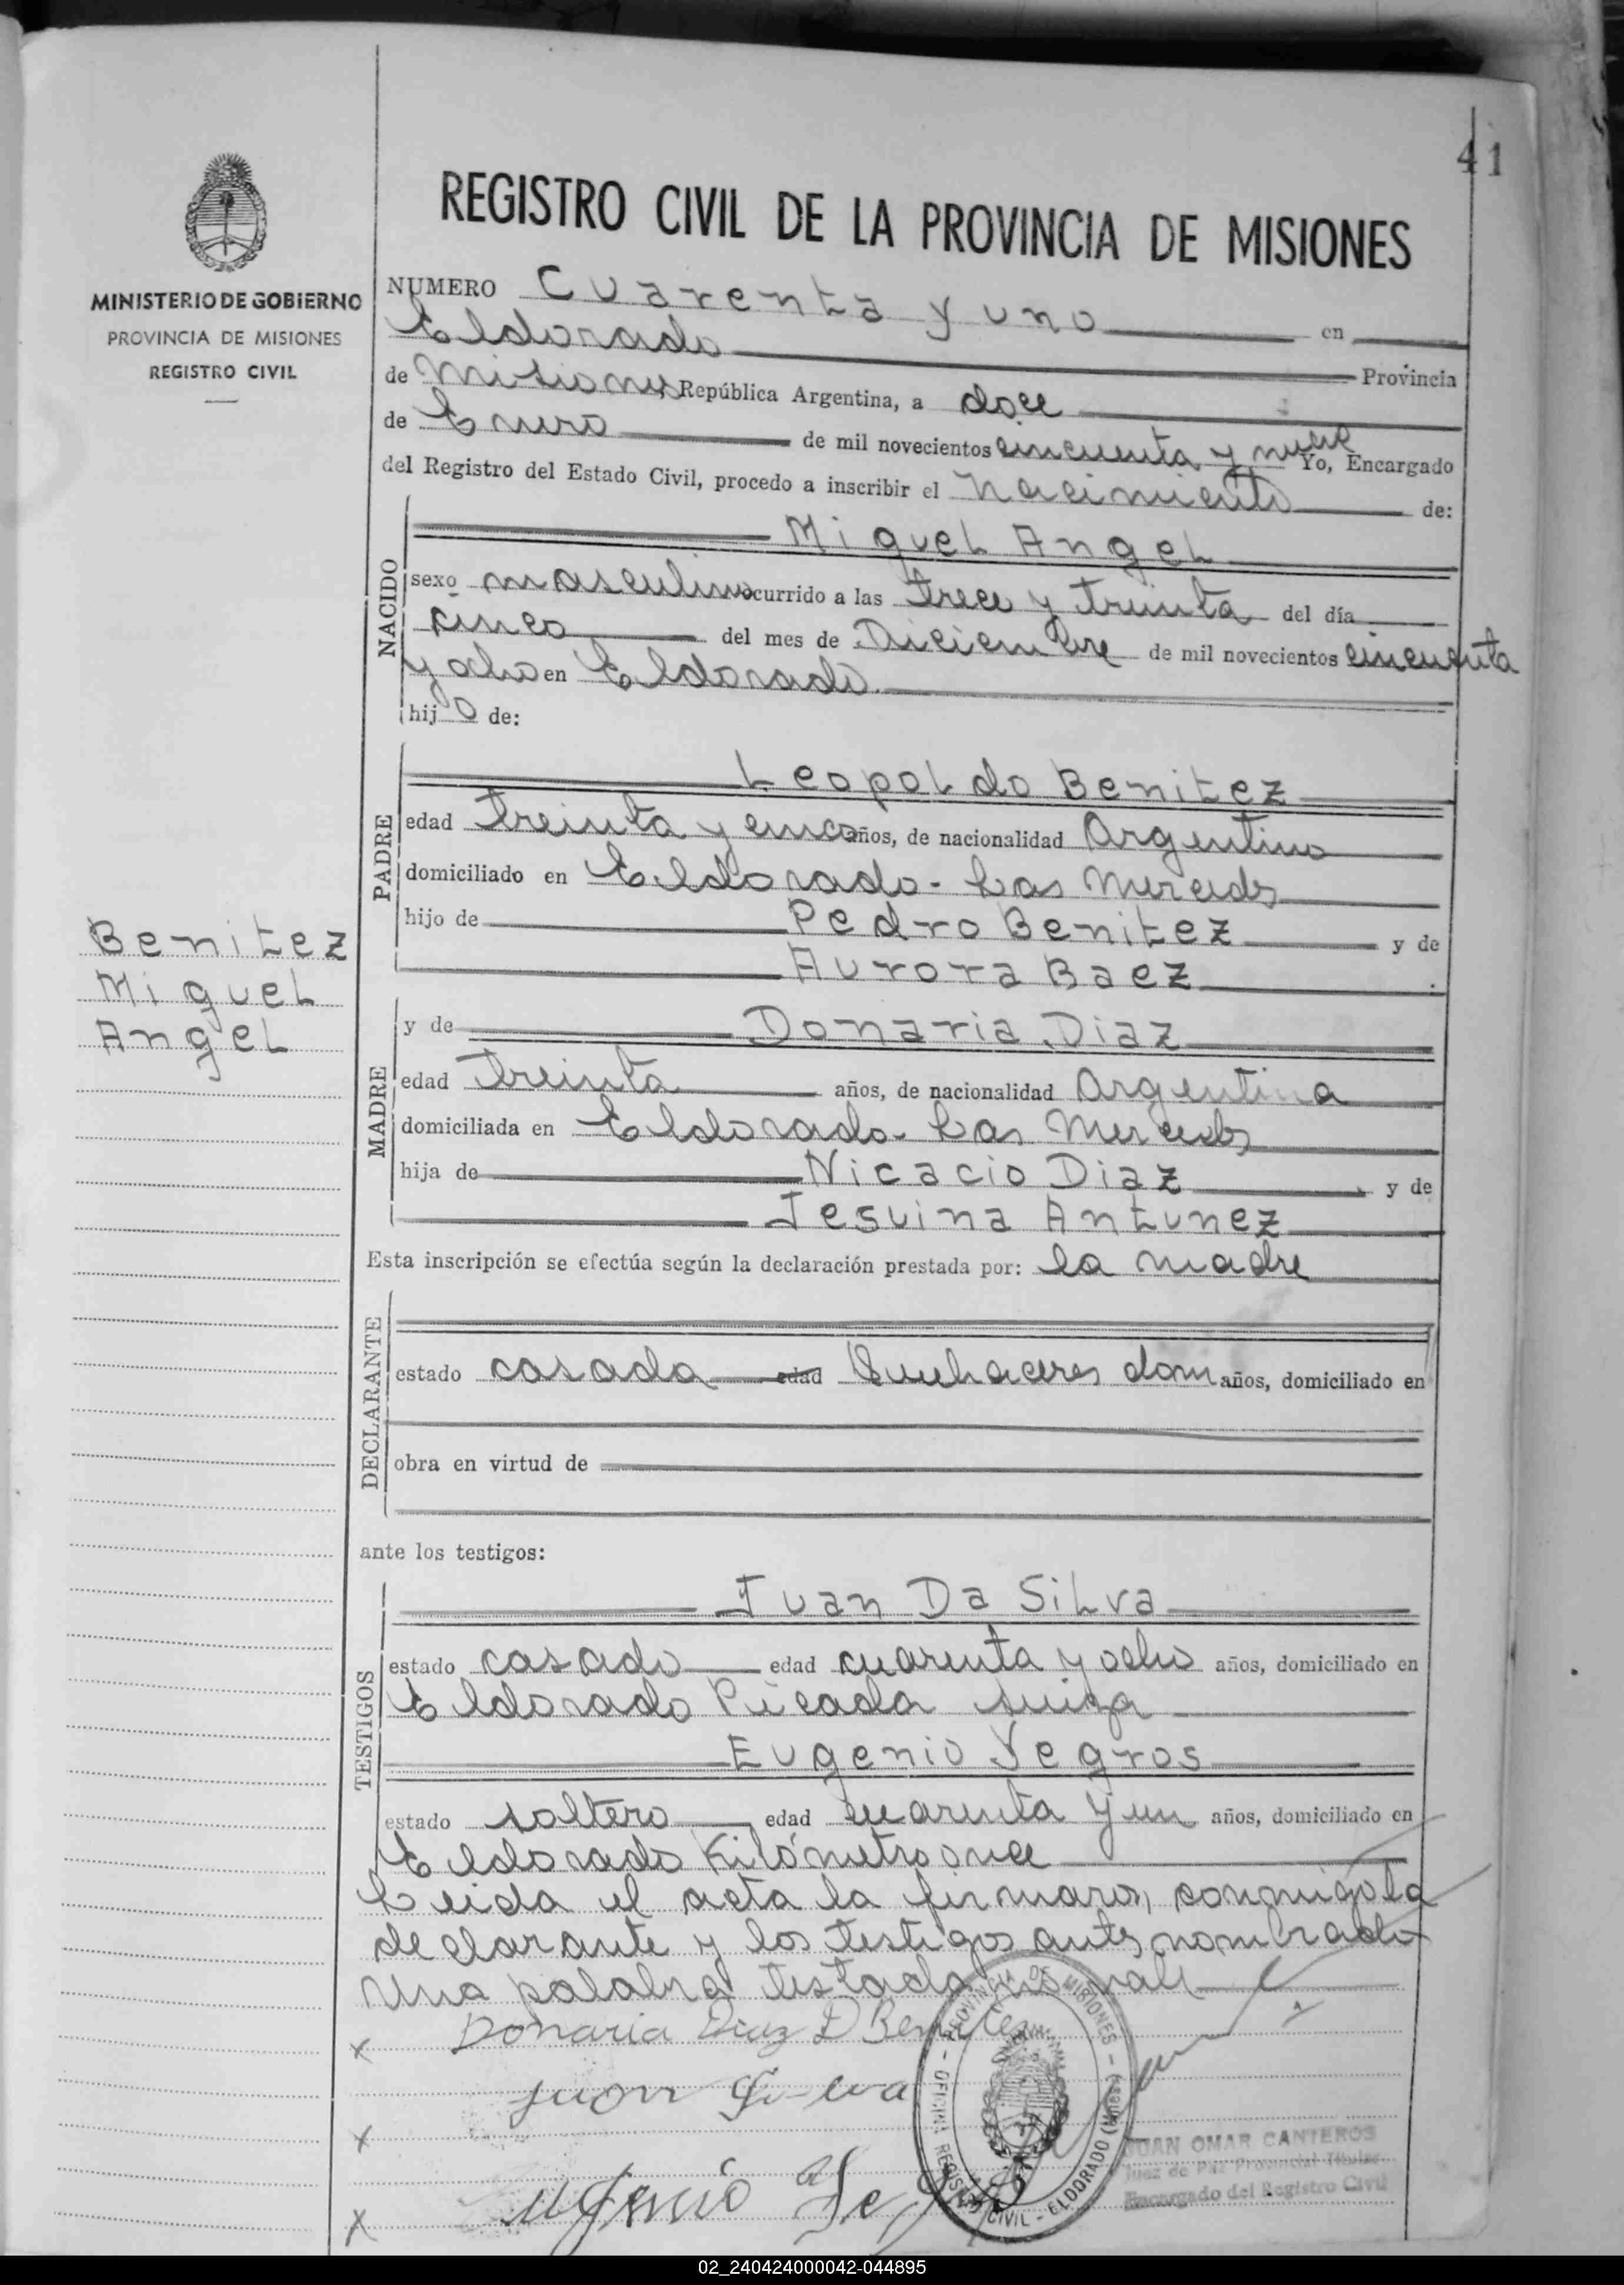 41
REGISTRO CIVIL DE LA PROVINCIA DE MISIONES
MINISTERIO DE GOBIERNO
PROVINCIA DE MISIONES
REGISTRO CIVIL
NUMERO Cuarenta y uno en
Eldorado Provincia
de Misiones, República Argentina, a doce
de Enero de mil novecientos cincuenta y nueve Yo, Encargado
del Registro del Estado Civil, procedo a inscribir el Nacimiento de:
NACIDO
Miguel Angel
sexo masculino ocurrido a las trece y treinta del día
cinco del mes de Diciembre de mil novecientos cincuenta
y ocho en Eldorado.
hijo de:
PADRE
Leopoldo Benitez
edad treinta y cinco años, de nacionalidad Argentino
domiciliado en Eldorado - Las Mercedes
hijo de Pedro Benitez y de
Aurora Baez
Benitez
Miguel
Angel
MADRE
y de Donaria Diaz
edad treinta años, de nacionalidad Argentina
domiciliada en Eldorado - Las Mercedes
hija de Nicacio Diaz y de
Jesuina Antunez
Esta inscripción se efectúa según la declaración prestada por: la madre
DECLARANTE
estado casada edad Quehaceres dom años, domiciliado en
obra en virtud de
ante los testigos:
TESTIGOS
Juan Da Silva
estado casado edad cuarenta y ocho años, domiciliado en
Eldorado Picada suiza
Eugenio Yegros
estado soltero edad cuarenta y un años, domiciliado en
Eldorado Kilómetro once
Leida el acta la firmaron, conmigo la
declarante y los testigos antes nombrados
Una palabra testada no vale
x Donaria Diaz D Benitez
Juan Silva
x
x Eugenio Yegros
PROVINCIA DE MISIONES - OFICINA REGISTRO CIVIL - ELDORADO (Misiones)
JUAN OMAR CANTEROS
Juez de Paz Provincial Titular
Encargado del Registro Civil
02_240424000042-044895